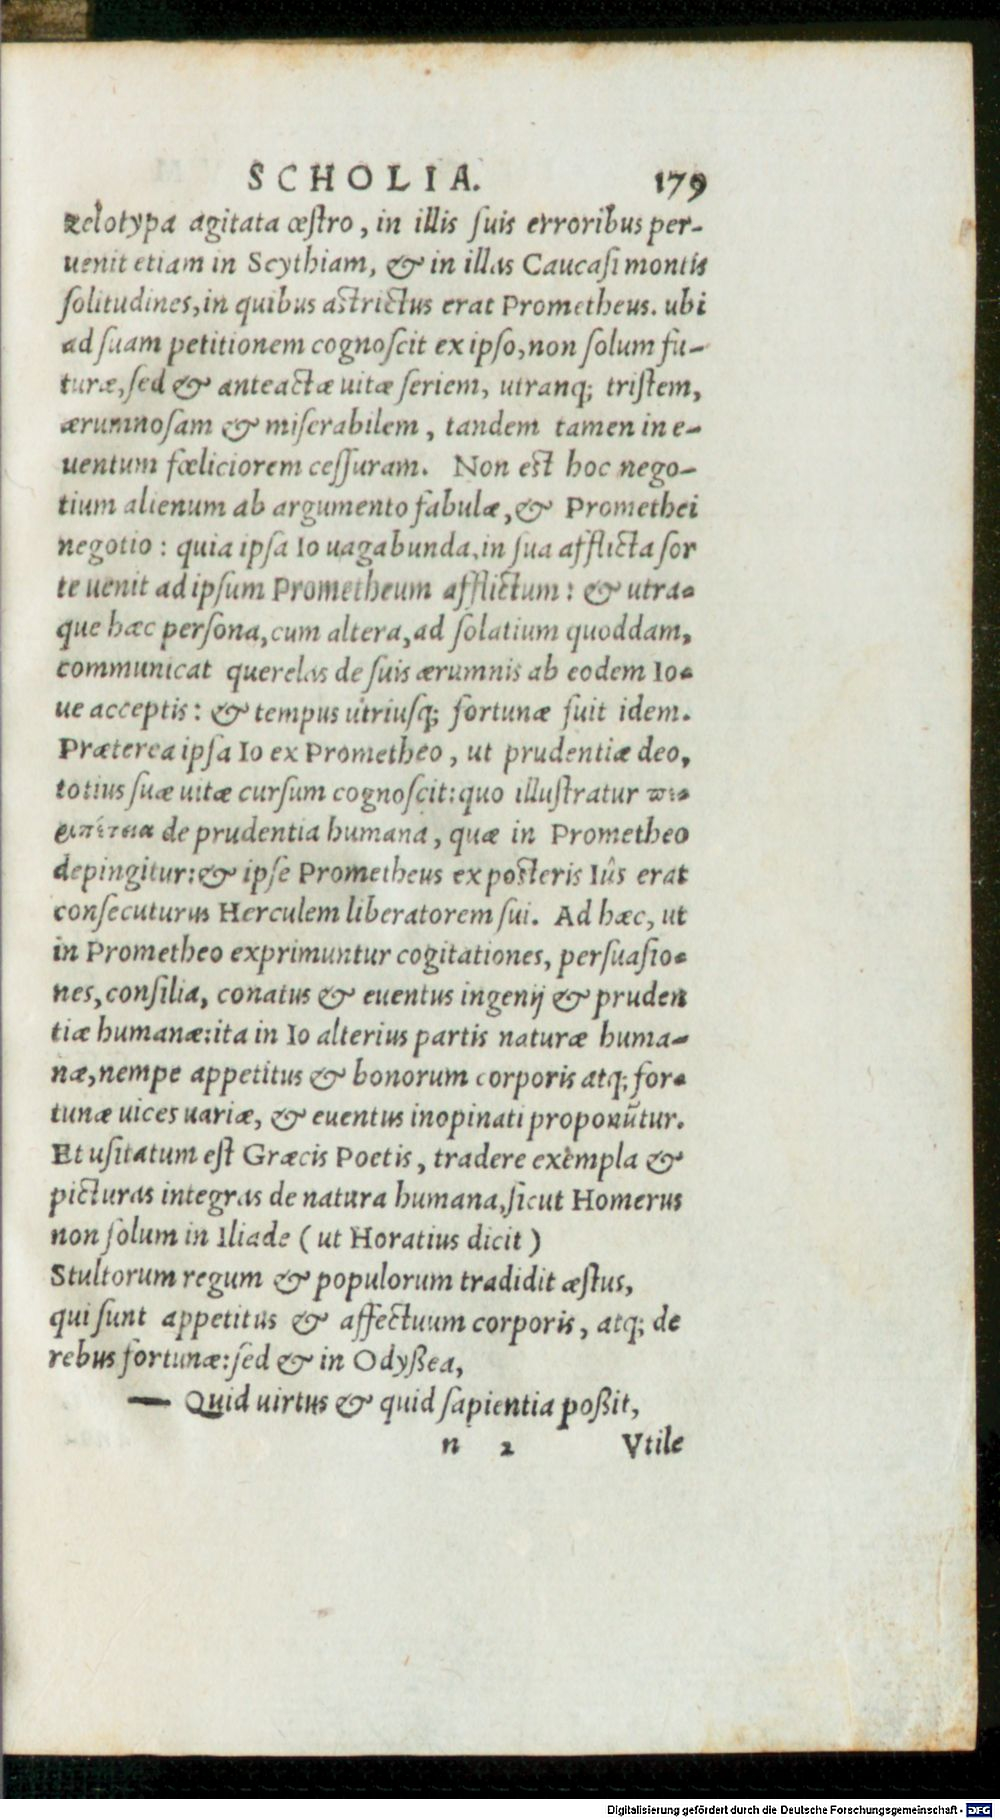 SCHOLIA. 179
zelotypa agitata œſtro, in illis ſuis erroribus per-
uenit etiam in Scythiam, & in illas Caucaſi montis
ſolitudines, in quibus aſtrictus erat Prometheus. ubi
ad ſuam petitionem cognoſcit ex ipſo, non ſolum fu-
turæ, ſed & anteactæ uitæ ſeriem, utranq; triſtem,
ærumnoſam & miſerabilem, tandem tamen in e-
uentum fœliciorem ceſſuram. Non eſt hoc nego-
tium alienum ab argumento fabulæ, & Promethei
negotio: quia ipſa Io uagabunda, in ſua afflicta ſor
te uenit ad ipſum Prometheum afflictum: & utra-
que hæc perſona, cum altera, ad ſolatium quoddam,
communicat querelas de ſuis ærumnis ab eodem Io-
ue acceptis: & tempus utriuſq; fortunæ fuit idem.
Præterea ipſa Io ex Prometheo, ut prudentiæ deo,
totius ſuæ uitæ curſum cognoſcit: quo illuſtratur
de prudentia humana, quæ in Prometheo
depingitur: & ipſe Prometheus ex poſteris Iûs erat
conſecuturus Herculem liberatorem ſui. Ad hæc, ut
in Prometheo exprimuntur cogitationes, perſuaſio-
nes, conſilia, conatus & euentus ingenij & pruden
tiæ humanæ: ita in Io alterius partis naturæ huma-
næ, nempe appetitus & bonorum corporis atq; for-
tunæ uices uariæ, & euentus inopinati proponũtur.
Et uſitatum eſt Græcis Poetis, tradere exempla &
picturas integras de natura humana, ſicut Homerus
non ſolum in Iliade ( ut Horatius dicit )
Stultorum regum & populorum tradidit æſtus,
qui ſunt appetitus & affectuum corporis, atq; de
rebus fortunæ: ſed & in Odyßea,
— Quid uirtus & quid ſapientia poßit,
n 2 Vtile
Digitalisierung gefördert durch die Deutsche Forschungsgemeinschaft - DFG